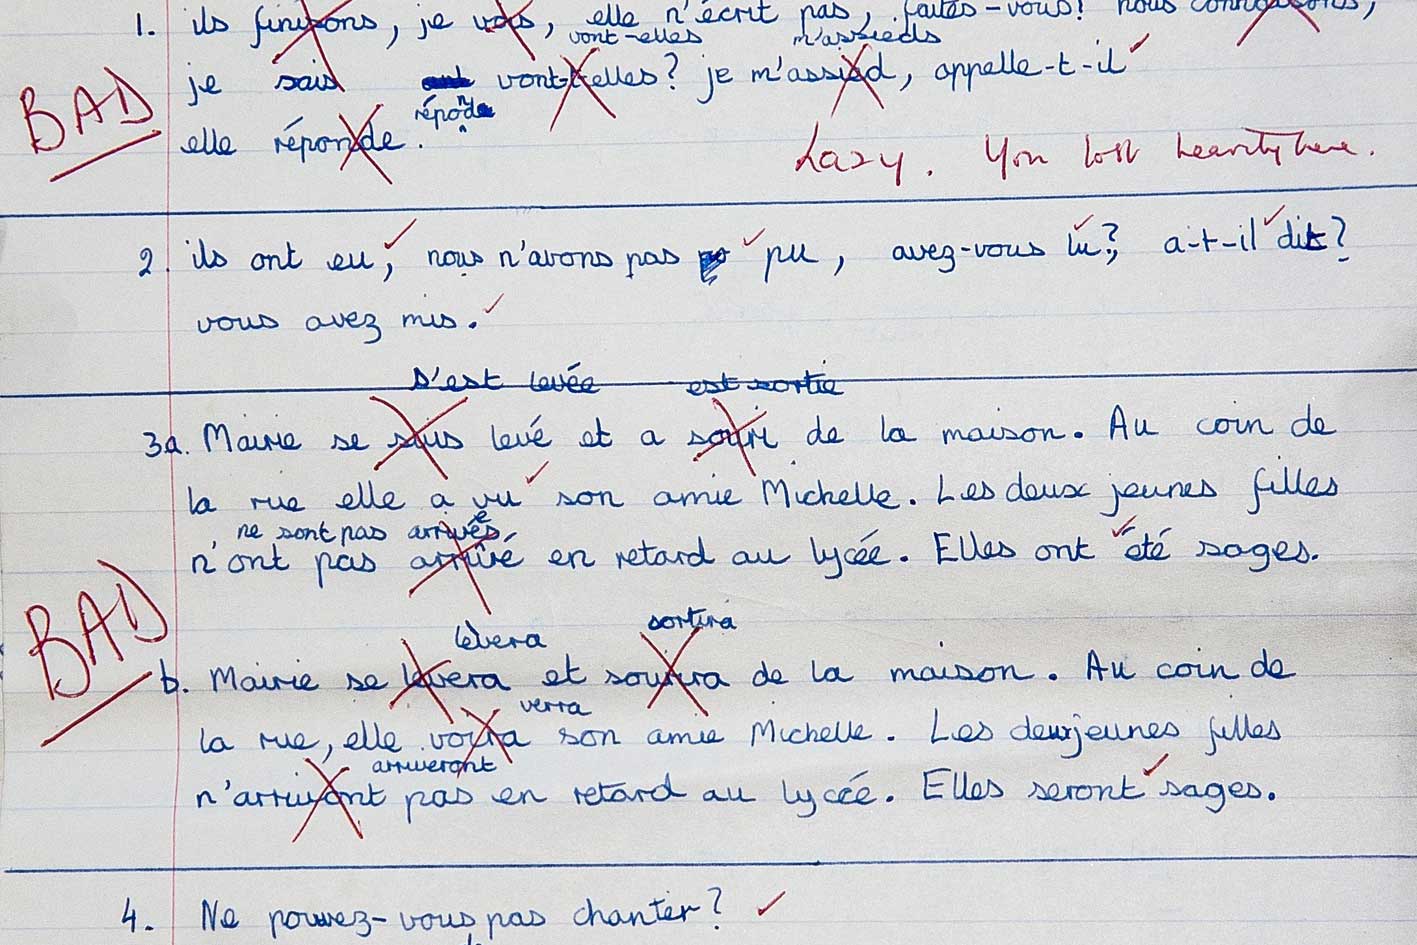 1. ils finissons, je vois, elle n'écrit pas, faites-vous? nous connaissons,
vont-elles m'assieds
BAD je sais vont-t-elles? je m'assied, appelle-t-il
réponde
elle réponde.
Lazy. You lost heavily here.
2 ils ont eu, nous n'avons pas pu, avez-vous lu?, a-t-il dit?
vous avez mis.
s'est levée est sortie
3a. Mairie se suis levé et a souri de la maison. Au coin de
la rue elle a vu son amie Michelle. Les deux jeunes filles
ne sont pas arrivées
n'ont pas arrivé en retard au lycée. Elles ont été sages.
lèvera sortira
BAD b. Mairie se levera et sourira de la maison. Au coin de
verra
la rue, elle voira son amie Michelle. Les deux jeunes filles
arriveront
n'arrivont pas en retard au lycée. Elles seront sages.
4. Ne pouvez-vous pas chanter?